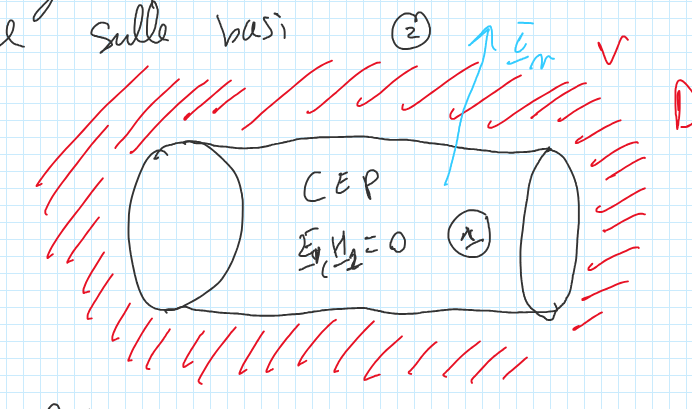 sulle basi ②
i̲n
V
D
CEP
E1, H1 = 0 ①